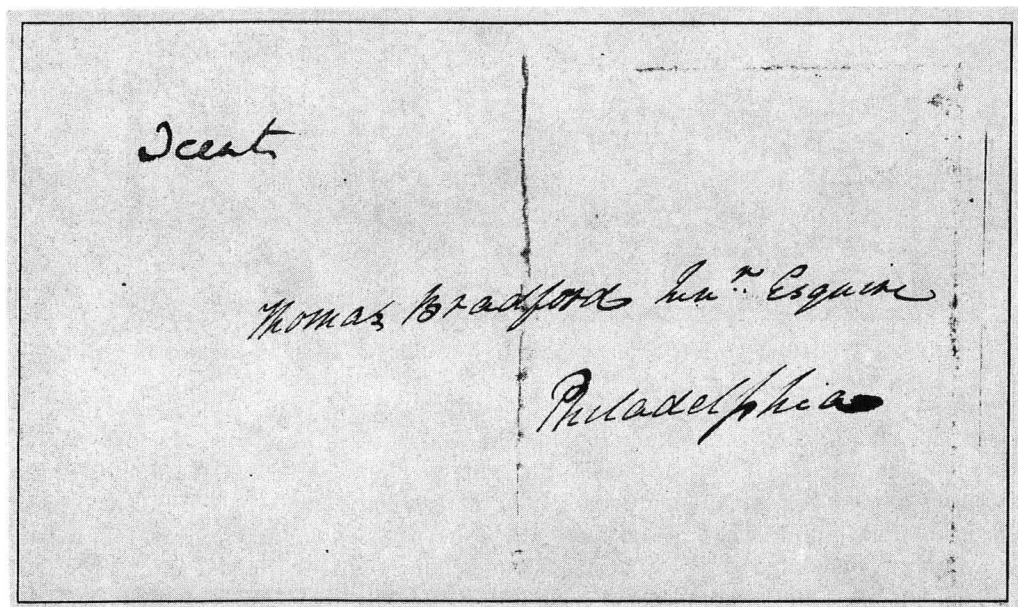 Thomas Bradford Junr. Esquire
Philadelphia